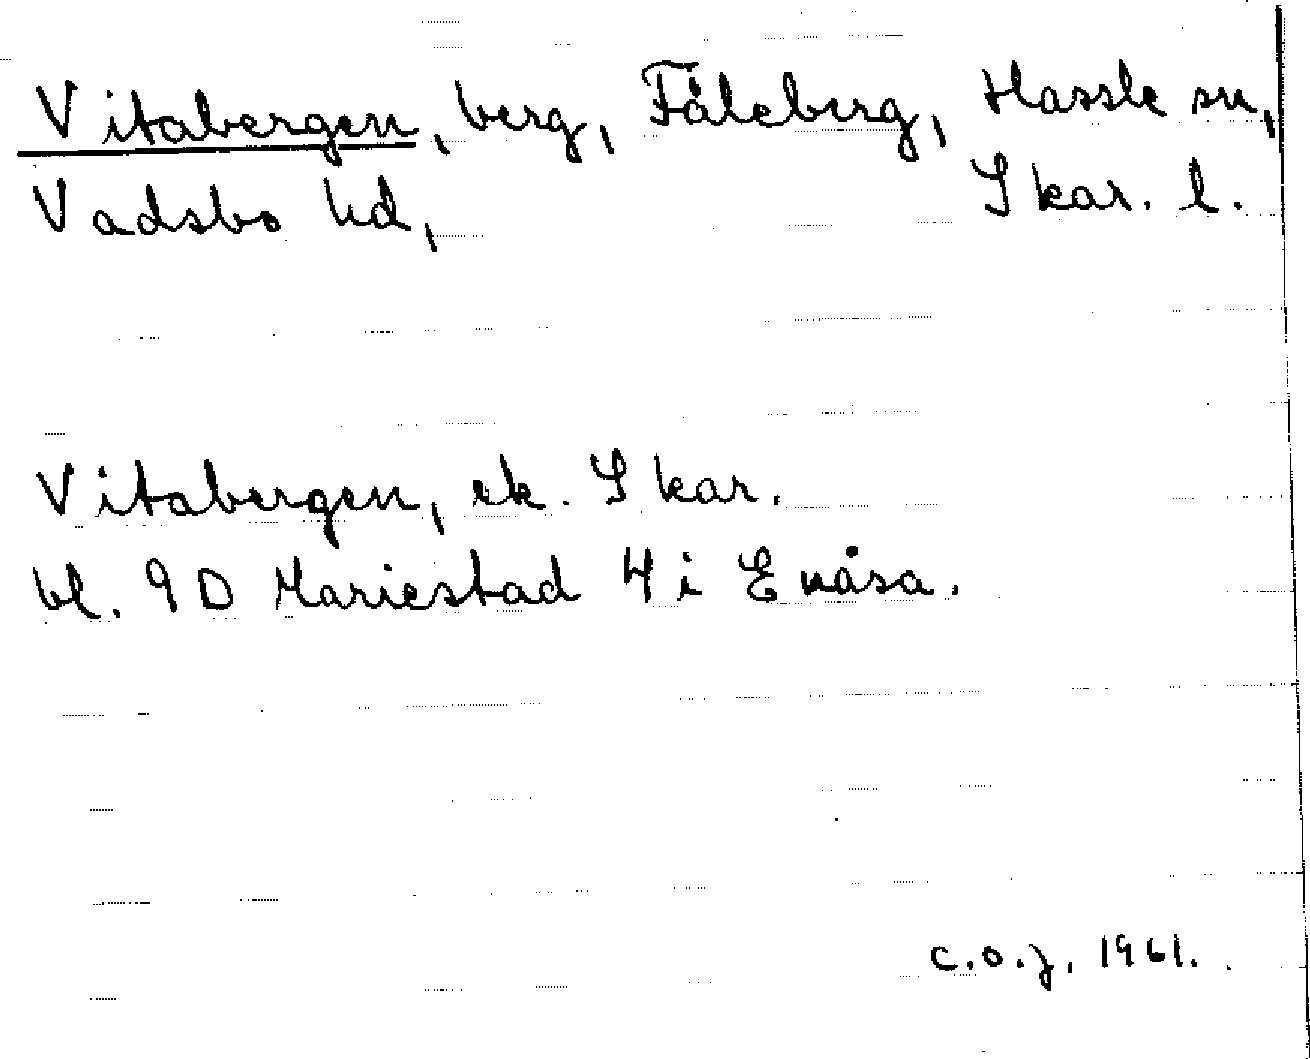 Vitabergen, berg, Fåleberg, Hassle sn,
Vadsbo hd, Skar. l.
Vitabergen, ek. Skar.
bl. 9D Mariestad 4 i Enåsa.
C.O.J. 1961.